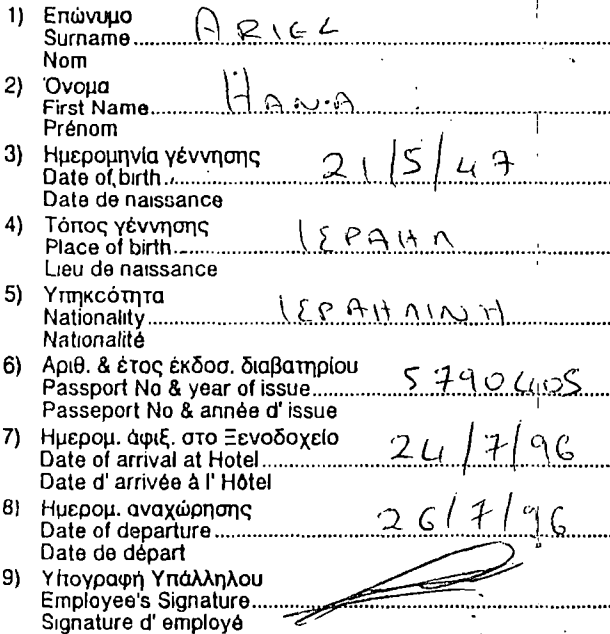 1) Επώνυμο
Surname ARIEL
Nom
2) Όνομα
First Name HANA
Prénom
3) Ημερομηνία γέννησης
Date of birth 21/5/47
Date de naissance
4) Τόπος γέννησης
Place of birth ΙΣΡΑΗΛ
Lieu de naissance
5) Υπηκοότητα
Nationality ΙΣΡΑΗΛΙΝΗ
Nationalité
6) Αριθ. & έτος έκδοσ. διαβατηρίου
Passport No & year of issue 5790405
Passeport No & année d' issue
7) Ημερομ. άφιξ. στο Ξενοδοχείο
Date of arrival at Hotel 24/7/96
Date d' arrivée à l' Hôtel
8) Ημερομ. αναχώρησης
Date of departure 26/7/96
Date de départ
9) Υπογραφή Υπάλληλου
Employee's Signature
Signature d' employé